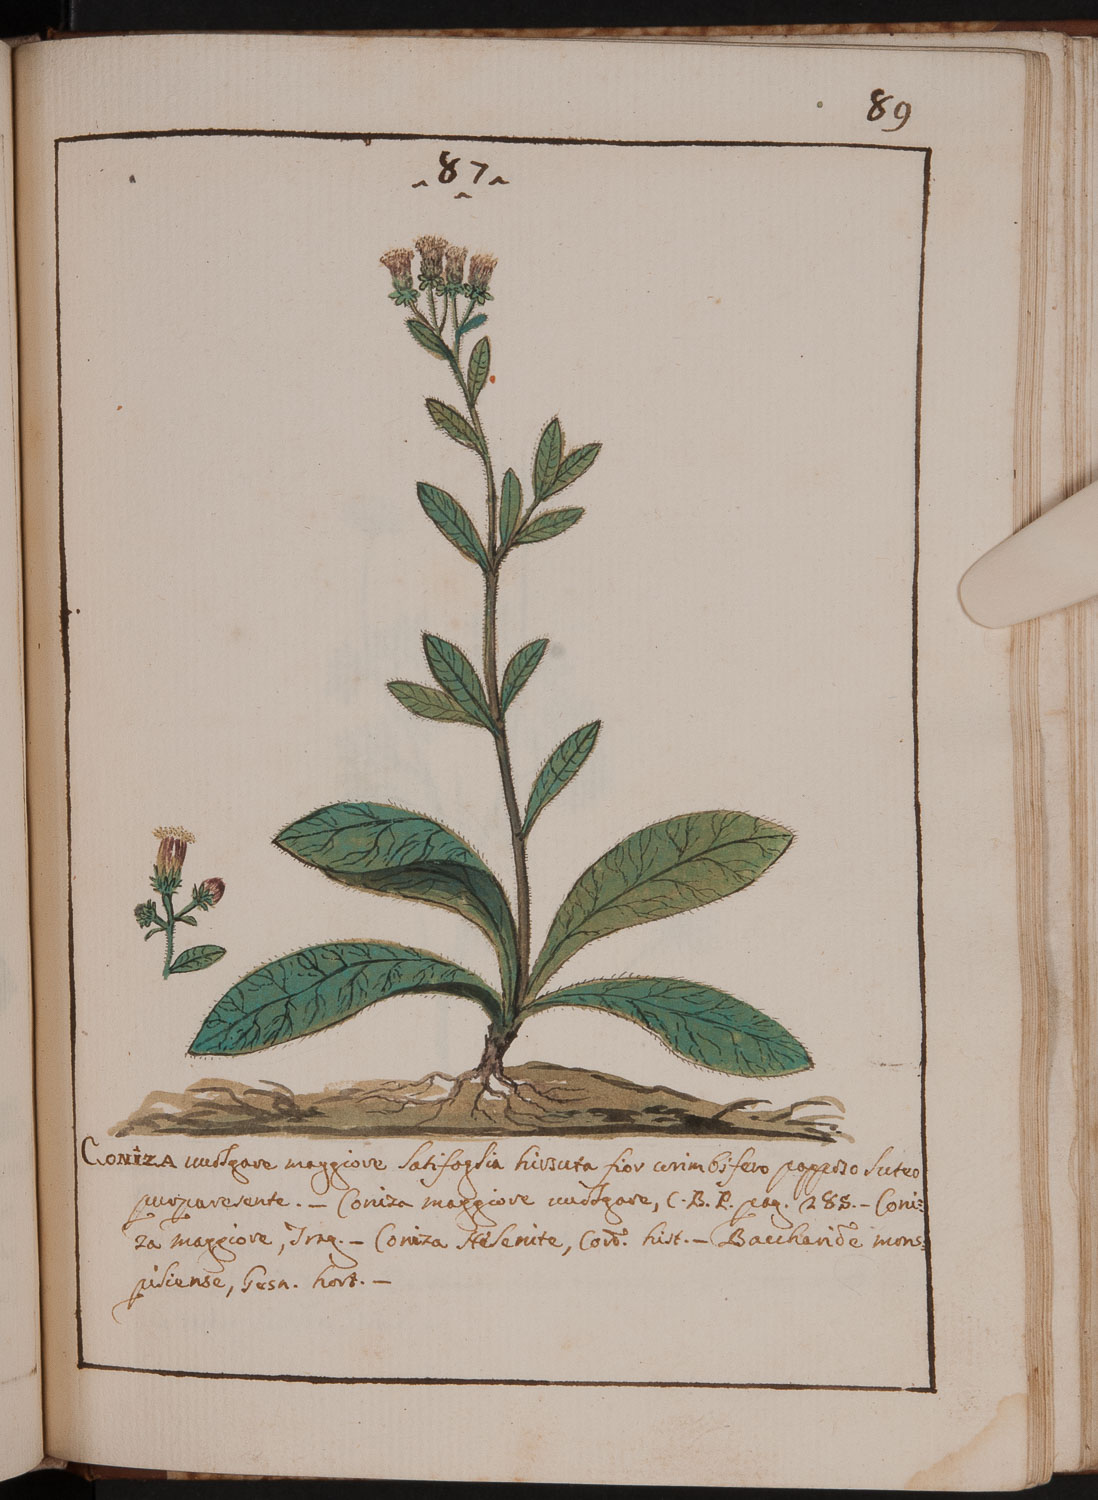 89
87
CONIZA uulgare maggiore latifoglia hirsuta fior corimbifero papposo luteo
purpuresente. — Coniza maggiore uulgare, C. B. P. pag. 285. — Coni=
za maggiore, Trag. — Coniza Helenite, Cord. hist. — Baccharide mons=
peliense, Gesn. hort. —